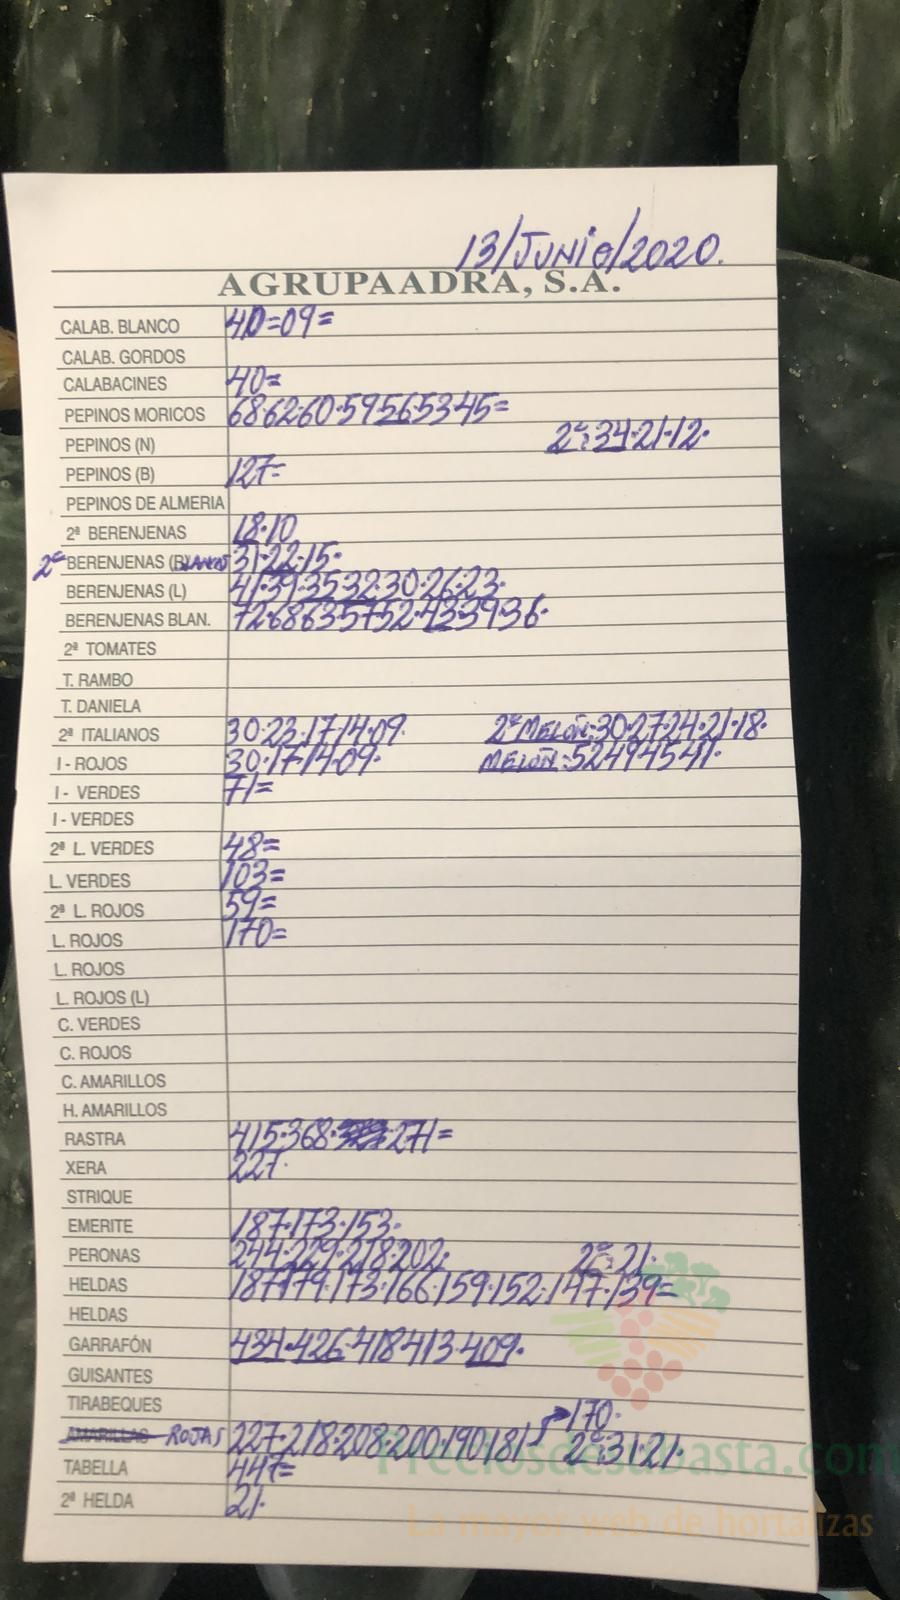 13/JUNIO/2020.
AGRUPAADRA, S.A.
CALAB. BLANCO 40=09=
CALAB. GORDOS
CALABACINES 40=
PEPINOS MORICOS 68·62·60·59·56·53·45=
PEPINOS (N) 2ª:34·21·12·
PEPINOS (B) 127=
PEPINOS DE ALMERIA
2ª BERENJENAS 18·10
2ª BERENJENAS (BLANCAS 31·22·15·
BERENJENAS (L) 41·39·35·32·30·26·23·
BERENJENAS BLAN. 72·68·63·57·52·43·39·36·
2ª TOMATES
T. RAMBO
T. DANIELA
2ª ITALIANOS 30·23·17·14·09· 2ª MELON:30·27·24·21·18·
I - ROJOS 30·17·14·09· MELON:52·49·45·41·
I - VERDES 71=
I - VERDES
2ª L. VERDES 48=
L. VERDES 103=
2ª L. ROJOS 59=
L. ROJOS 170=
L. ROJOS
L. ROJOS (L)
C. VERDES
C. ROJOS
C. AMARILLOS
H. AMARILLOS
RASTRA 415·368·271=
XERA 227·
STRIQUE
EMERITE 187·173·153·
PERONAS 244·229·218·202· 2ª:21·
HELDAS 187·179·173·166·159·152·147·139=
HELDAS
GARRAFÓN 434·426·418·413·409·
GUISANTES
TIRABEQUES 170·
AMARILLAS ROJAS 227·218·208·200·190·181 2ª:31·21·
TABELLA 447=
2ª HELDA 21·
Preciosdesubasta.com
La mayor web de hortalizas